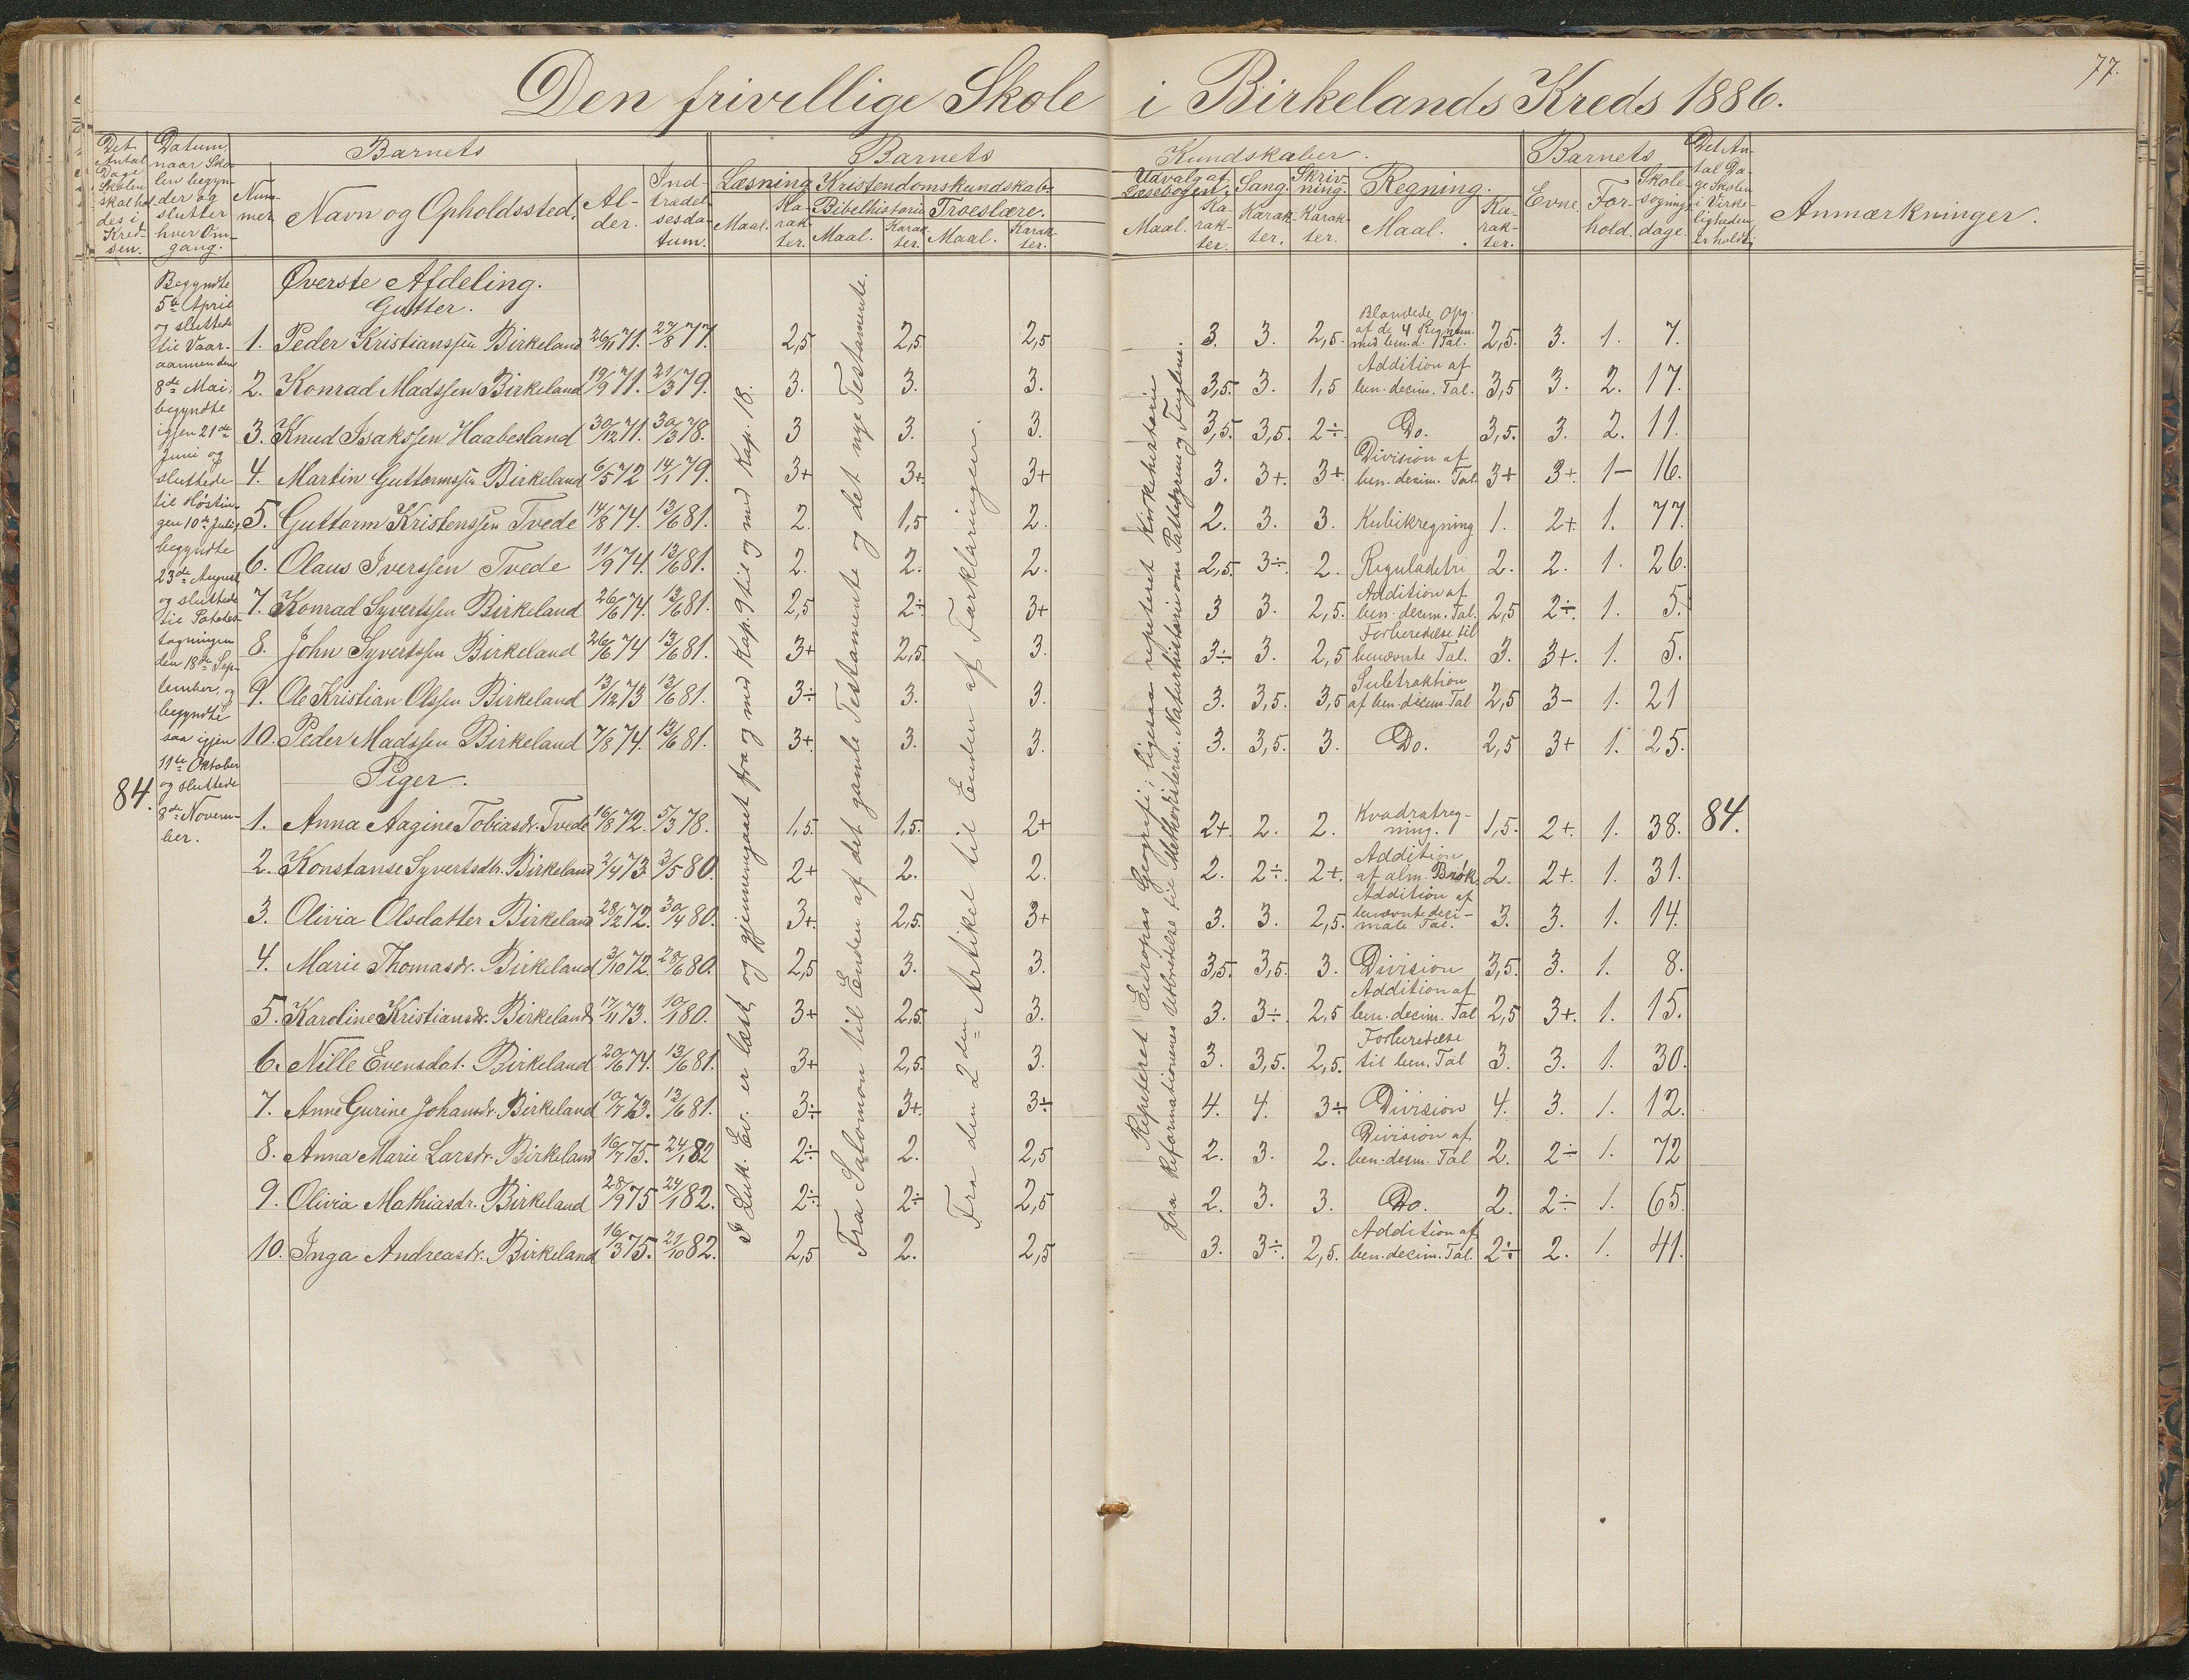 77.
Den frivillige Skole i Birkelands Kreds 1886.
Det Antal Dage Skolen skal holdes i Kredsen.
Datum, naar Skolen begynder og slutter hver Omgang.
Barnets
Nummer.
Navn og Opholdssted.
Alder.
Indtrædelsesdatum.
Barnets Kundskaber.
Læsning
Maal.
Karakter.
Kristendomskundskab.
Bibelhistorie
Maal.
Karakter.
Troeslære.
Maal.
Karakter.
Udvalg af Læsebogen.
Maal.
Karakter.
Sang.
Karakter.
Skrivning.
Karakter.
Regning.
Maal.
Karakter.
Barnets
Evne.
Forhold.
Skolesøgningsdage.
Det Antal Dage Skolen i Virkeligheden er holdt i
Anmærkninger.
84.
Begyndte
5te April
og sluttede
til Vaar-
aannenden
8de Mai,
begyndte
igjen 21de
Juni og
sluttede
til Høstin-
gen 10de Juli,
begyndte
23de August
og sluttede
til Potetes-
tagningen
den 18de Sep-
tember, og
begyndte
saa igjen
11te Oktober
og sluttede
8de Novem-
ber.
I Luk. Ev. er læst og gjennemgaaet fra og med Kap. 9 til og med Kap. 18.
Fra Salomon til Enden af det gamle Testamente og det nye Testamente.
Fra den 2den Artikel til Enden af Forklaringen.
Repeteret Europas Geografi; ligesaa repeteret Kirkehistorie
fra Reformationens Udbredelse til Methodisterne. Naturhistorie om Pattedyrene og Fuglene.
Øverste Afdeling.
Gutter.
1. Peder Kristianssen Birkeland 26/11 71. 27/8 77. 2,5 2,5 2,5 3. 3. 2,5. Blandede Opg. af de 4 Regnem. med ben. d. Tal. 2,5. 3. 1. 7.
2. Konrad Madssen Birkeland 19/9 71. 21/3 79. 3. 3. 3. 3,5. 3. 1,5 Addition af ben. decim. Tal. 3,5 3. 2. 17.
3. Knud Isakssen Haabesland 30/12 71. 30/3 78. 3 3. 3. 3,5. 3,5. 2÷ Do. 3,5. 3. 2. 11.
4. Martin Guttormssen Birkeland 6/5 72 14/1 79. 3+ 3+ 3+ 3. 3+. 3+ Division af ben. decim. Tal. 3+ 3+ 1- 16.
5. Guttorm Kristenssen Tvede 14/8 74. 13/6 81. 2. 1,5 2. 2. 3. 3. Kubikregning 1. 2+ 1. 77.
6. Olaus Iverssen Tvede 11/9 74. 13/6 81. 2. 2. 2. 2,5. 3÷ 2. Reguladetri 2. 2. 1. 26.
7. Konrad Syvertssen Birkeland 26/6 74. 13/6 81. 2,5 2÷ 3+ 3 3. 2,5. Addition af ben. decim. Tal. 2,5 2÷ 1. 5.
8. John Syvertssen Birkeland 26/6 74 13/6 81. 3+ 2,5. 3. 3÷ 3. 2,5 Forberedelse til benævnte Tal. 3. 3+. 1. 5.
9. Ole Kristian Olssen Birkeland 13/12 73 13/6 81. 3÷ 3. 3. 3. 3,5. 3,5 Subtraktion af ben. decim. Tal 2,5 3- 1. 21
10. Peder Madssen Birkeland 7/8 74. 13/6 81. 3+. 3. 3. 3. 3,5. 3. Do. 2,5 3+ 1. 25.
Piger.
1. Anna Aagine Tobiasdr. Tvede 16/8 72. 5/3 78. 1,5. 1,5. 2+ 2+. 2. 2. Kvadratregning. 1,5. 2+. 1. 38. 84.
2. Konstanse Syvertsdtr. Birkeland 2/4 73. 3/5 80. 2+ 2. 2. 2. 2÷. 2+. Addition af alm. Brøk 2. 2+. 1. 31.
3. Olivia Olsdatter Birkeland 28/12 72. 30/4 80. 3+. 2,5. 3+ 3. 3. 2,5. Addition af benævnte decimale Tal. 3. 3. 1. 14.
4. Marie Thomasdr. Birkeland 3/10 72. 28/6 80. 2,5 3. 3. 3,5. 3,5. 3. Division 3,5. 3. 1. 8.
5. Karoline Kristiansdr. Birkeland 17/11 73. 10/1 80. 3+ 2,5. 3. 3. 3÷. 2,5 Addition af ben. decim. Tal 2,5 3+. 1. 15.
6. Nille Evensdat. Birkeland 20/6 74. 13/6 81. 3+ 2,5. 3. 3. 3,5. 2,5. Forberedelse til ben. Tal 3. 3. 1. 30.
7. Anne Gurine Johansdr. Birkeland 10/7 73. 13/6 81. 3÷ 3+. 3÷ 4. 4. 3÷ Division 4. 3. 1. 12.
8. Anna Marie Larsdr. Birkeland 16/7 75. 24/1 82 2÷ 2. 2,5 2. 3. 2. Division af ben. decim. Tal 2. 2÷ 1. 72
9. Olivia Mathiasdr. Birkeland 28/9 75 24/1 82. 2÷ 2÷ 2,5 2. 3. 3. Do. 2. 2÷ 1. 65.
10. Inga Andreasdr. Birkeland 16/3 75. 27/10 82. 2,5 2. 2,5 3. 3÷. 2,5. Addition af ben. decim. Tal. 2÷ 2. 1. 41.